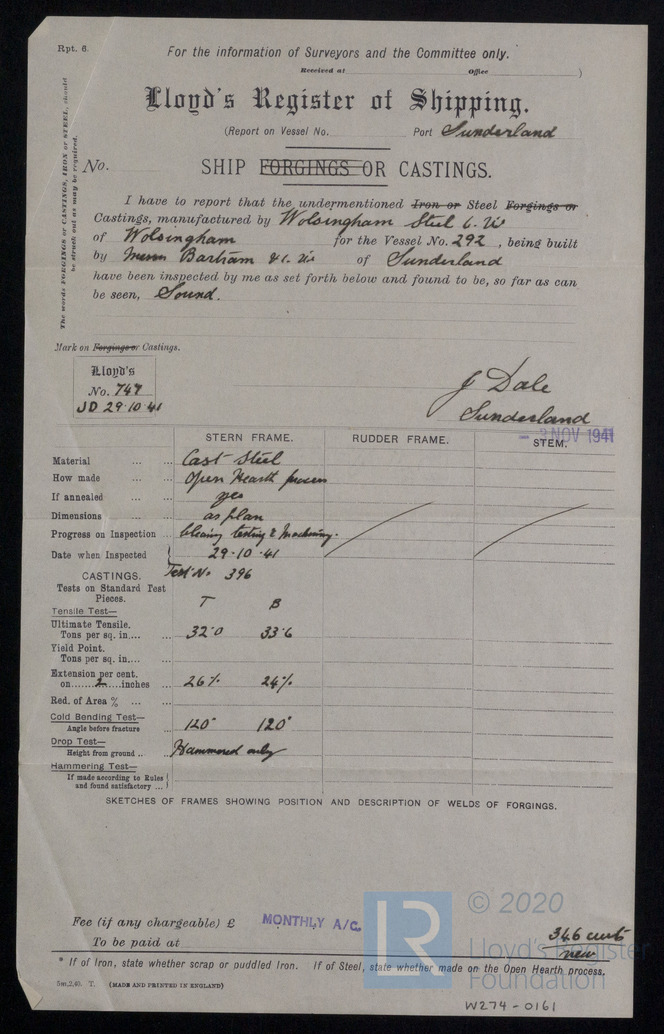 Rpt. 6.
For the information of Surveyors and the Committee only.
Received at Office )
Lloyd's Register of Shipping.
(Report on Vessel No. Port Sunderland
No. SHIP FORGINGS OR CASTINGS.
The words FORGINGS or CASTINGS, IRON or STEEL, should be struck out as may be required.
I have to report that the undermentioned Iron or Steel Forgings or
Castings, manufactured by Wolsingham Steel C. Ltd
of Wolsingham for the Vessel No. 292, being built
by Messrs Bartram & Sons of Sunderland
have been inspected by me as set forth below and found to be, so far as can
be seen, Sound.
Mark on Forgings or Castings.
Lloyd's
No. 747
JD 29·10·41
J Dale
Sunderland
- 3 NOV 1941
STERN FRAME. RUDDER FRAME. STEM.
Material ... ... Cast Steel
How made ... ... Open Hearth process
If annealed ... ... yes
Dimensions ... ... as plan
Progress on Inspection ... testing & Machining.
Date when Inspected 29·10·41
CASTINGS. Test No 396
Tests on Standard Test
Pieces. T B
Tensile Test—
Ultimate Tensile.
Tons per sq. in.... ... 32·0 33·6
Yield Point.
Tons per sq. in.... ...
Extension per cent.
on.......2....inches ... 26% 24%
Red. of Area % ... ...
Cold Bending Test—
Angle before fracture ... 120° 120°
Drop Test—
Height from ground .. ... Hammered only
Hammering Test—
If made according to Rules
and found satisfactory ...
SKETCHES OF FRAMES SHOWING POSITION AND DESCRIPTION OF WELDS OF FORGINGS.
Fee (if any chargeable) £ MONTHLY A/C.
To be paid at
346 cwts
new
* If of Iron, state whether scrap or puddled Iron. If of Steel, state whether made on the Open Hearth process.
5m,2,40. T. (MADE AND PRINTED IN ENGLAND)
LR
© 2020
Lloyd's Register
Foundation
W274-0161